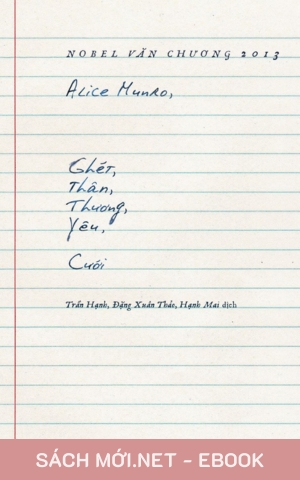 NOBEL VĂN CHƯƠNG 2013
Alice Munro,
Ghét,
Thân,
Thương,
Yêu,
Cưới
Trần Hạnh, Đặng Xuân Thảo, Hạnh Mai dịch
SÁCH MỚI.NET - EBOOK